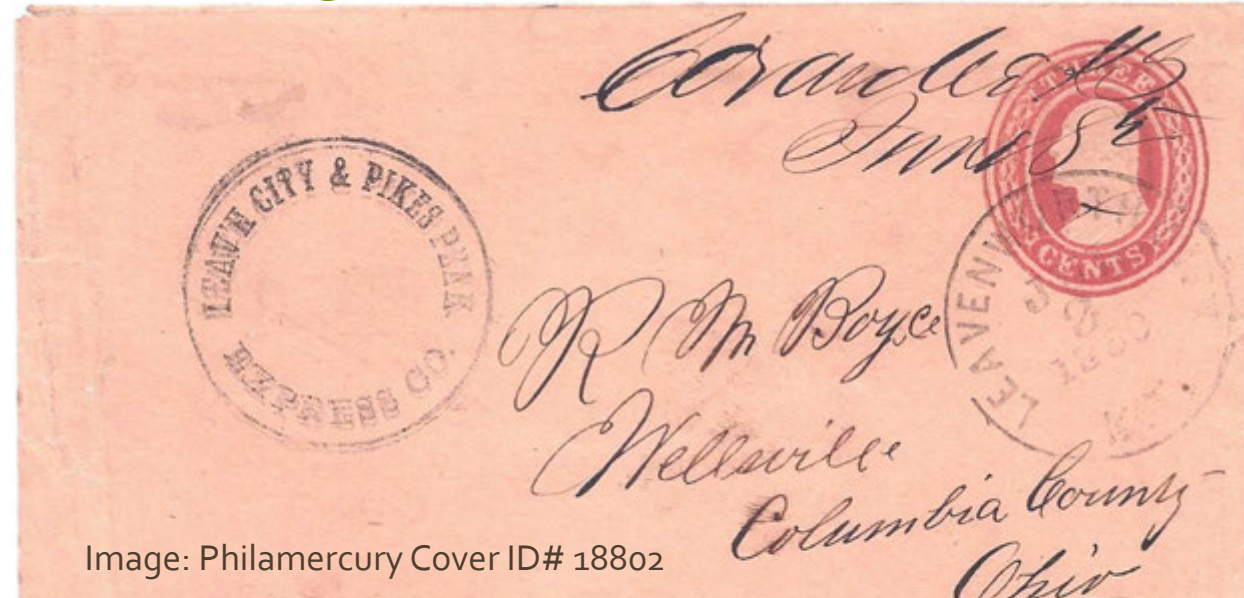 June 8th
THREE
CENTS
LEAV'H CITY & PIKES PEAK
EXPRESS CO.
LEAVENW
R M Boyce
Wellsville
Columbia County
Ohio
Image: Philamercury Cover ID# 18802